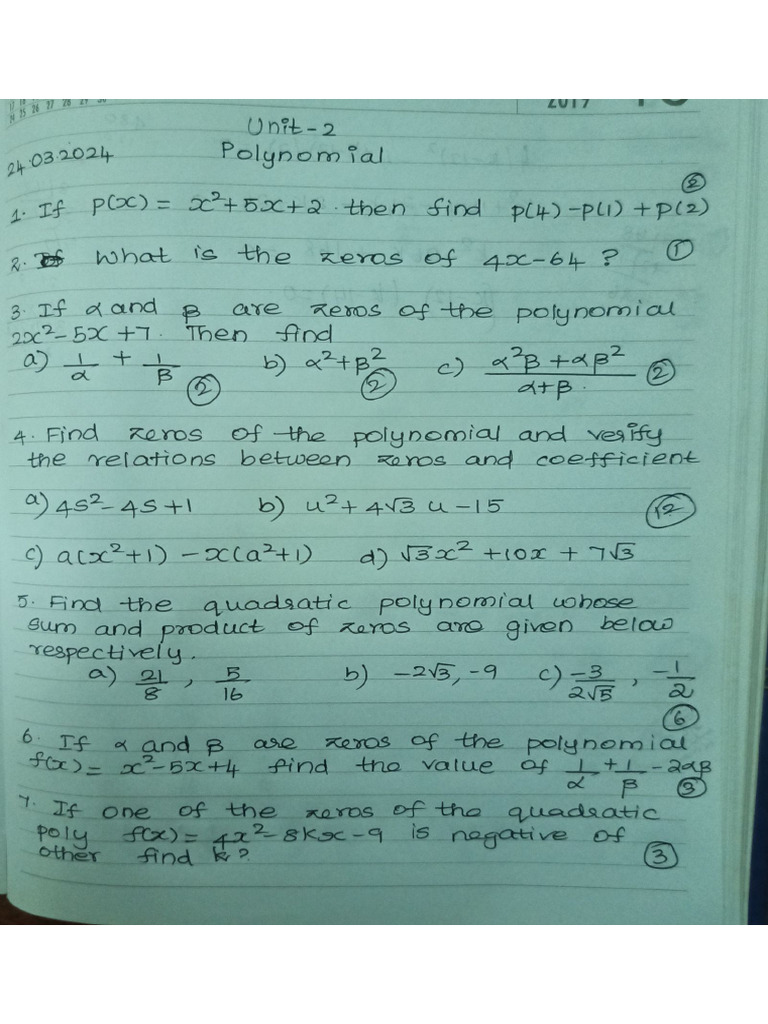 2019
24 25 26 27 28 29 30
Unit-2
24.03.2024 Polynomial
②
1. If p(x) = x²+5x+2. then find p(4)-p(1)+p(2)
2. What is the zeros of 4x-64 ? ①
3. If α and β are zeros of the polynomial
2x²-5x+7. Then find
a) 1/α + 1/β ② b) α²+β² ② c) (α²β+αβ²)/(α+β). ②
4. Find zeros of the polynomial and verify
the relations between zeros and coefficient
a) 4s²-4s+1 b) u²+4√3 u-15 ⑫
c) a(x²+1)-x(a²+1) d) √3x²+10x+7√3
5. Find the quadratic polynomial whose
sum and product of zeros are given below
respectively.
a) 21/8 , 5/16 b) -2√3, -9 c) -3/2√5 , -1/2
⑥
6. If α and β are zeros of the polynomial
f(x) = x²-5x+4 find the value of 1/α + 1/β - 2αβ
③
7. If one of the zeros of the quadratic
poly f(x) = 4x²-8kx-9 is negative of
other find k? ③